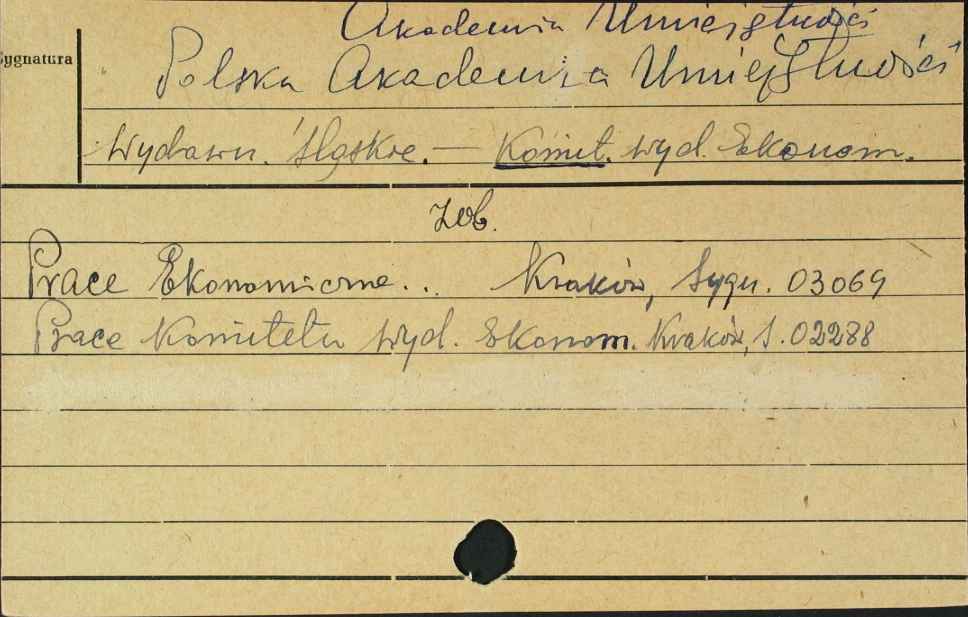 Akademia Umiejętności
Sygnatura
Polska Akademia Umiejętności
Wydawn. Śląskie. — Komit. wyd. Ekonom.
zob.
Prace Ekonomiczne... Kraków, Sygn. 03069
Prace Komitetu Wyd. Ekonom. Kraków, S. 02288